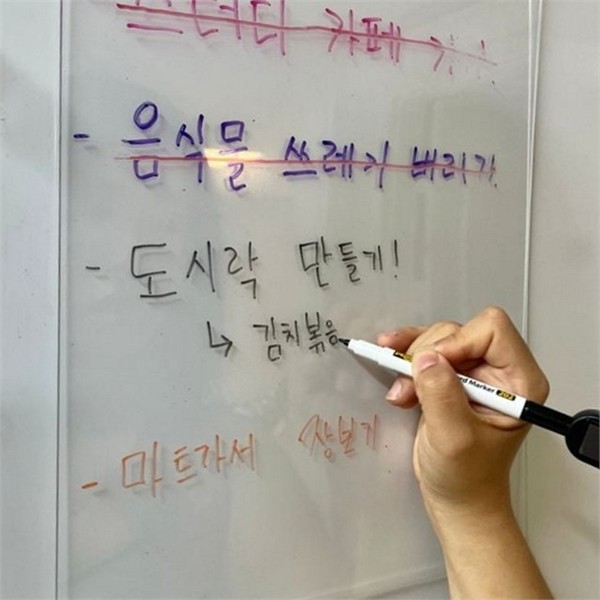 스터디 카페 가기
- 음식물 쓰레기 버리기
- 도시락 만들기!
↳ 김치볶음
- 마트가서 장보기
Marker 702